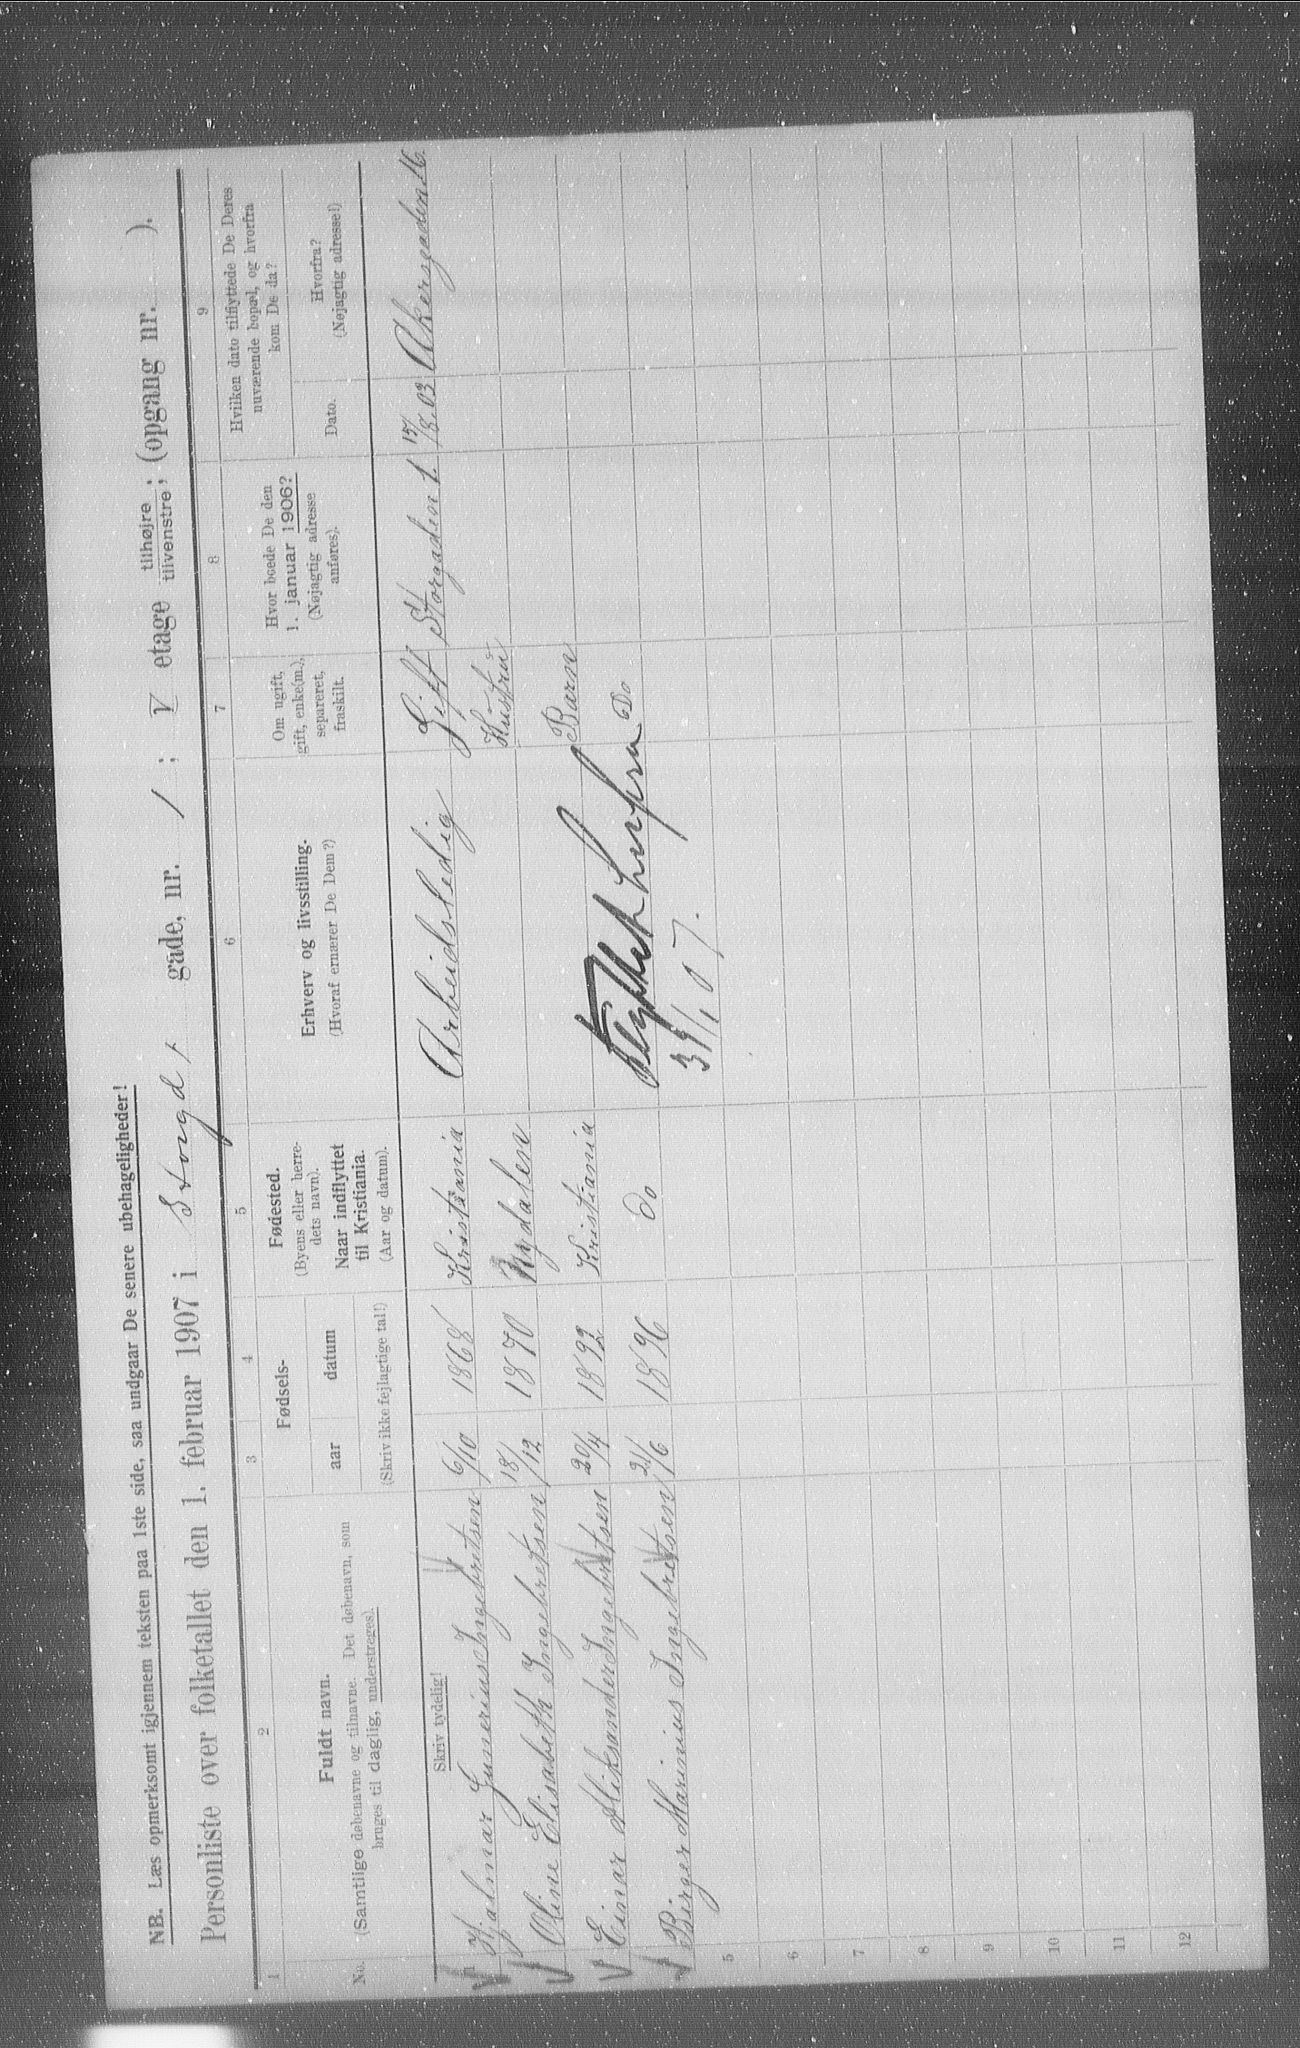 NB. Læs opmerksomt igjennem teksten paa 1ste side, saa undgaar De senere ubehageligheder!
Personliste over folketallet den 1. februar 1907 i Storgd. gade, nr. 1 ; V etage tilhøjre ; tilvenstre ; (opgang nr. ).
1 2 3 4 5 6 7 8 9
No.
Fuldt navn.
(Samtlige døbenavne og tilnavne. Det døbenavn, som
bruges til daglig, understreges).
Fødsels-
aar datum
(Skriv ikke fejlagtige tal!)
Fødested.
(Byens eller herre-
dets navn).
Naar indflyttet
til Kristiania.
(Aar og datum).
Erhverv og livsstilling.
(Hvoraf ernærer De Dem?)
Om ugift,
gift, enke(m.),
separeret,
fraskilt.
Hvor boede De den
1. januar 1906?
(Nøjagtig adresse
anføres).
Hvilken dato tilflyttede De Deres
nuværende bopæl, og hvorfra
kom De da?
Dato.
Hvorfra?
(Nøjagtig adresse!)
Skriv tydelig!
1 Hjalmar Ingebretsen 6/10 1868 Kristiania Arbeidsledig Gift Storgaden 1. 15/8.03 Akersgaden 16.
Oline Elisabeth Ingebretsen 18/12 1870 Nydalen Hustru
Einar Aliksander Ingebretsen 20/4 1892 Kristiania Barn
Birger Marinius Ingebretsen 21/6 1896 do Do
31/1 07.
5
6
7
8
9
10
11
12